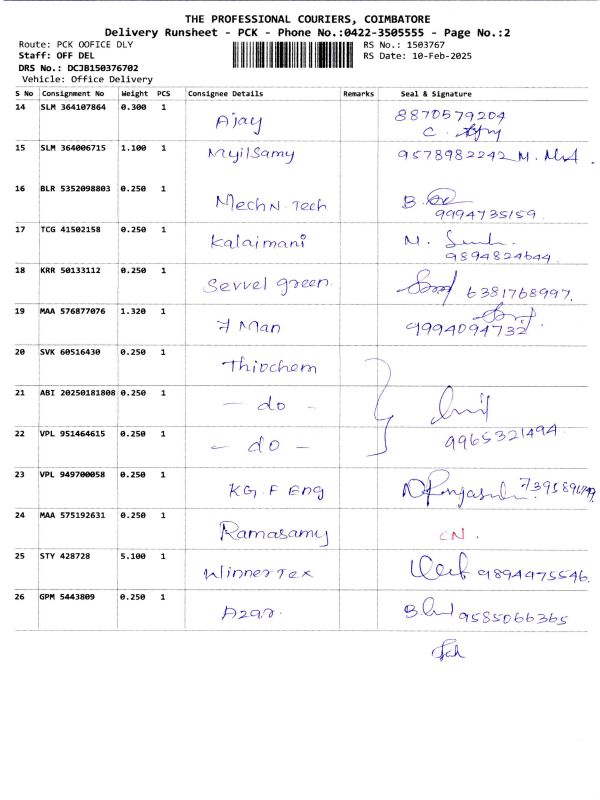 THE PROFESSIONAL COURIERS, COIMBATORE
Delivery Runsheet - PCK - Phone No.:0422-3505555 - Page No.:2
Route: PCK OOFICE DLY RS No.: 1503767
Staff: OFF DEL RS Date: 10-Feb-2025
DRS No.: DCJB150376702
Vehicle: Office Delivery
S No Consignment No Weight PCS Consignee Details Remarks Seal & Signature
14 SLM 364107864 0.300 1 Ajay 8870579204
15 SLM 364006715 1.100 1 Myilsamy 9578982242
16 BLR 5352098803 0.250 1 Mech N. Tech 9994735159.
17 TCG 41502158 0.250 1 Kalaimani 9894824644.
18 KRR 50133112 0.250 1 Servel green. 6381768997.
19 MAA 576877076 1.320 1 7 Man 9994094732
20 SVK 60516430 0.250 1 Thiochem
21 ABI 20250181808 0.250 1 - do -
22 VPL 951464615 0.250 1 - do - 9965321494.
23 VPL 949700058 0.250 1 KG. F Eng
24 MAA 575192631 0.250 1 Ramasamy CN.
25 STY 428728 5.100 1 Winner Tex 9894475546.
26 GPM 5443809 0.250 1 Azar. 9585066365